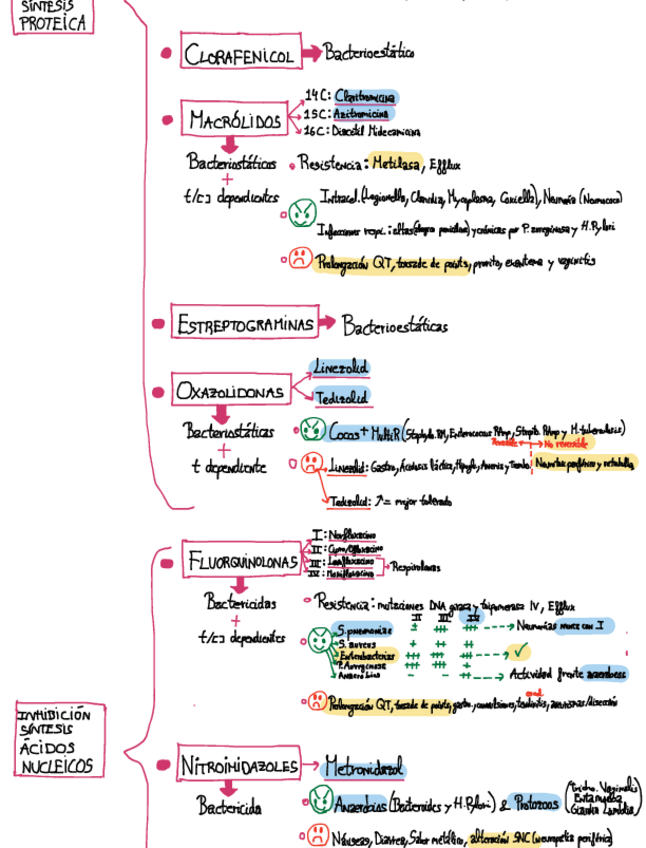 SÍNTESIS
PROTEICA
CLORAFENICOL → Bacterioestático
MACRÓLIDOS
14C: Claritromicina
15C: Azitromicina
16C: Diacetil Midecamicina
Bacteriostáticos
+
t/[c] dependientes
Resistencia: Metilasa, Efflux
Intracel. (Legionella, Clamidia, Mycoplasma, Coxiella), Neumonía (Neumococo)
Infecciones respi.: altas (alergia penicilina) y crónicas por P. aeruginosa y H. Pylori
Prolongación QT, torsade de points, prurito, exantema y vaginitis
ESTREPTOGRAMINAS → Bacterioestáticas
OXAZOLIDONAS
Linezolid
Tedizolid
Bacteriostáticas
+
t dependiente
Cocos + MultiR (Staphylo. RM, Enterococcus RAmp, Strepto. RAmp y M. tuberculosis)
Reversible → No reversible
Linezolid: Gastro, Acidosis láctica, Hipogly, Anemia y Trombo. Neuritis periférica y retrobulb.
Tedizolid: mejor tolerado
FLUORQUINOLONAS
I: Norfloxacino
II: Cipro/Ofloxacino
III: Levofloxacino
IV: Moxifloxacino
Respiratorias
Bactericidas
+
t/[c] dependientes
Resistencia: mutaciones DNA girasa y topimerasa IV, Efflux
II III IV
S. pneumoniae ± +++ +++ → Neumonías nunca con I
S. aureus + ++ ++
Enterobacterias +++ +++ +++ → ✓
P. Aeruginosa +++ +++ +
Anaerobios - - + → Actividad frente anaerobios
Prolongación QT, torsade de points, gastro., convulsiones, tendinitis, aneurismas/disección
INHIBICIÓN
SÍNTESIS
ÁCIDOS
NUCLEICOS
NITROIMIDAZOLES → Metronidazol
Bactericida
Anaerobios (Bacteroides y H. Pylori) & Protozoos (Tricho. Vaginalis
Entamoeba
Giardia Lamblia)
Náuseas, Diarrea, Sabor metálico, alteración SNC (neuropatía periférica)